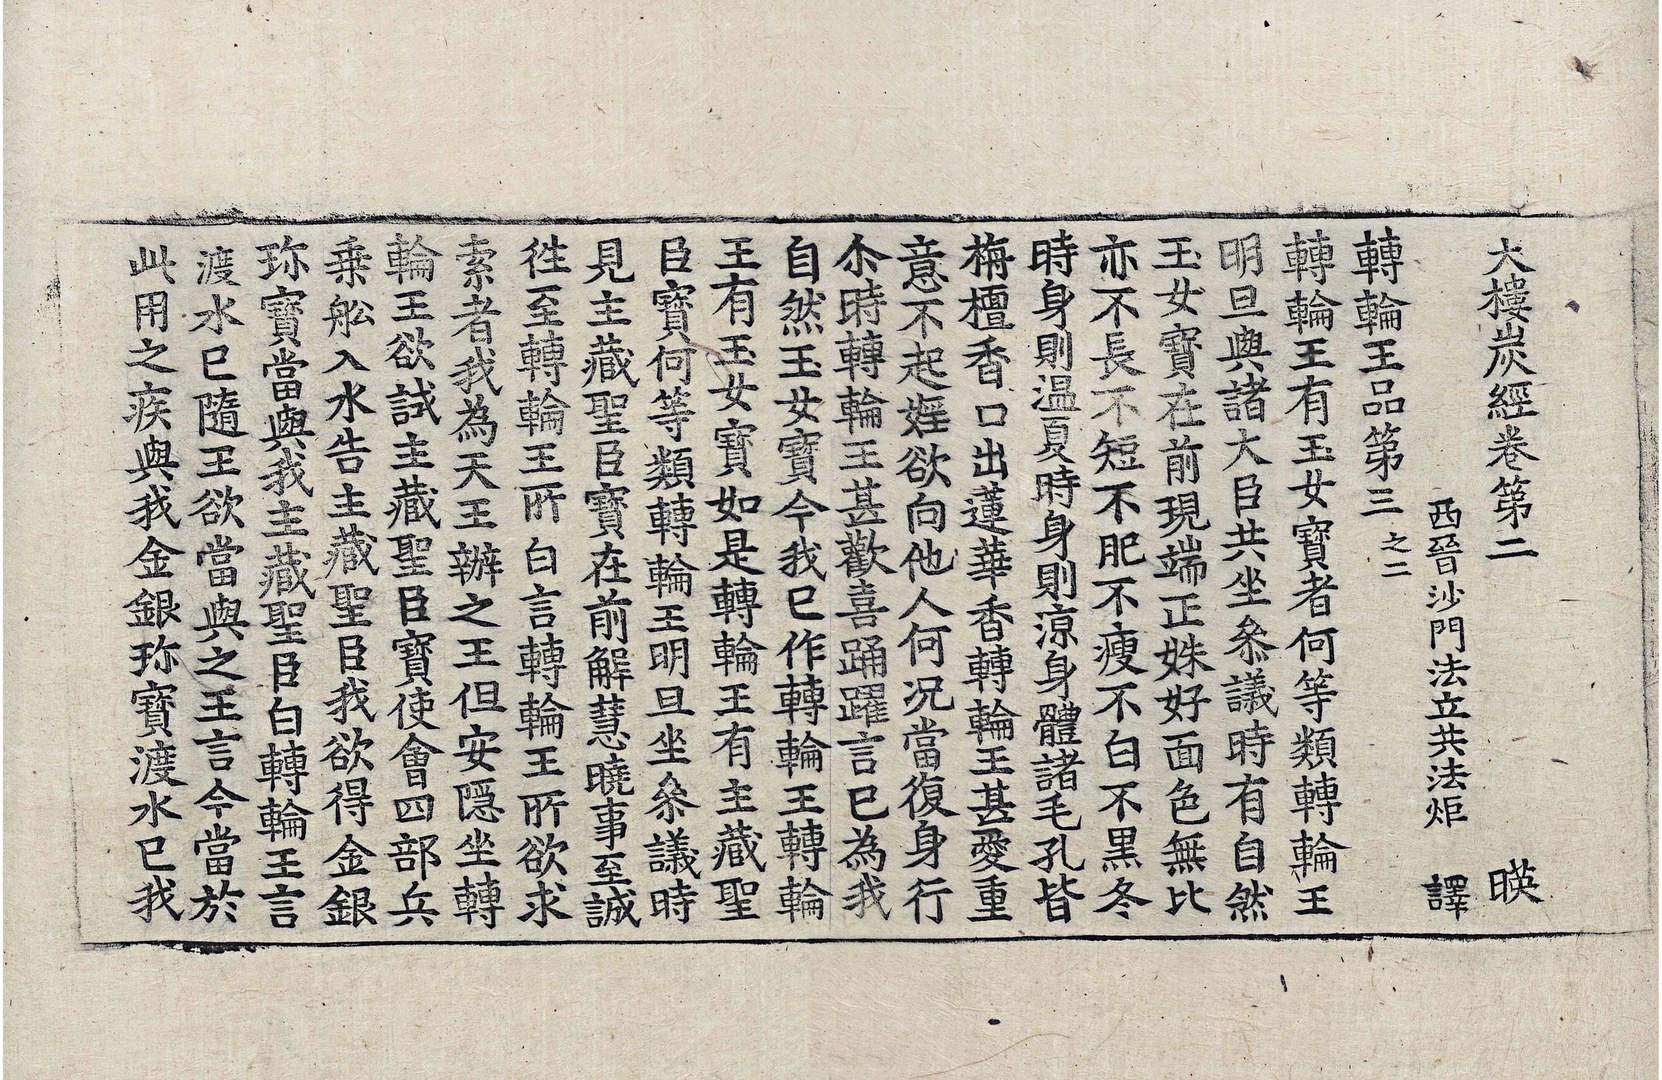 大樓炭經卷第二 暎
西晉沙門法立共法炬 譯
轉輪王品第三之二
轉輪王有玉女寶者何等類轉輪王
明旦與諸大臣共坐叅議時有自然
玉女寶在前現端正姝好面色無比
亦不長不短不肥不瘦不白不黑冬
時身則温夏時身則涼身體諸毛孔皆
栴檀香口出蓮華香轉輪王甚愛重
意不起婬欲向他人何况當復身行
尒時轉輪王甚歡喜踊躍言已為我
自然玉女寶今我已作轉輪王轉輪
王有玉女寶如是轉輪王有主藏聖
臣寶何等類轉輪王明旦坐叅議時
見主藏聖臣寶在前解慧曉事至誠
徃至轉輪王所白言轉輪王所欲求
索者我為天王辦之王但安隱坐轉
輪王欲試主藏聖臣寶使會四部兵
乗舩入水告主藏聖臣我欲得金銀
珎寶當與我主藏聖臣白轉輪王言
渡水已隨王欲當與之王言今當於
此用之疾與我金銀珎寶渡水已我